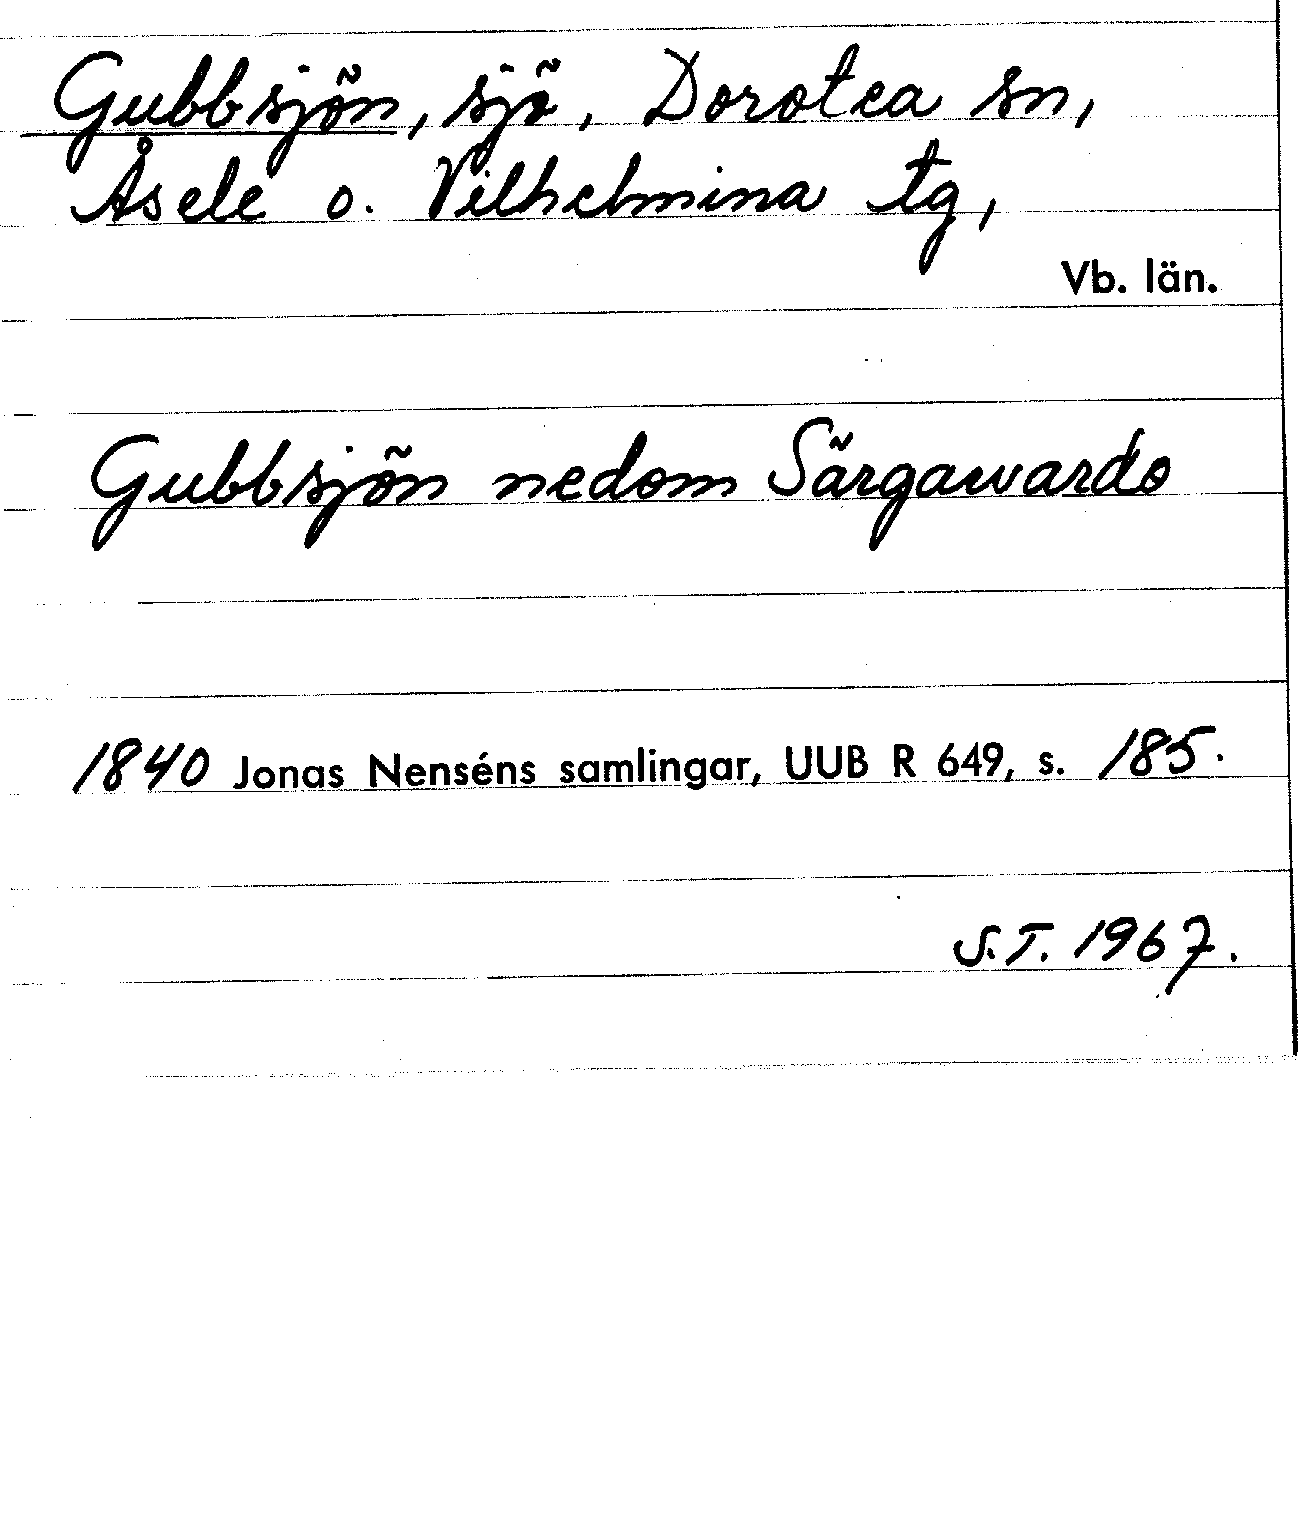 Gubbsjön, sjö, Dorotea sn,
Åsele o. Vilhelmina tg,
Vb. län.
Gubbsjön nedom Särgawardo
1840 Jonas Nenséns samlingar, UUB R 649, s. 185.
S.T. 1967.